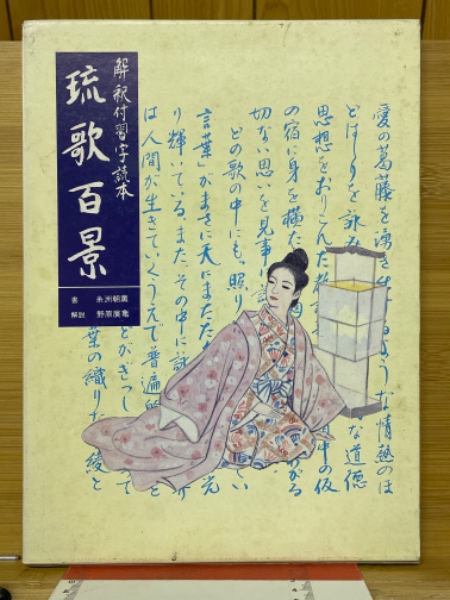 解釈付習字読本
琉歌百景
書 糸洲朝薫
解説 野原廣亀
愛の葛藤を湧き ような情熱のほ
とばしりを詠み な道徳
思想をおりこんだ教 道中の仮
の宿に身を横た がる
切ない思いを見事に
どの歌の中にも、照り てい
言葉」がまさに天にまたた 光
り輝いている。また、その中に詠
は人間が生きていくうえで普遍的 と
とがぎっし
葉の織りな 綾と